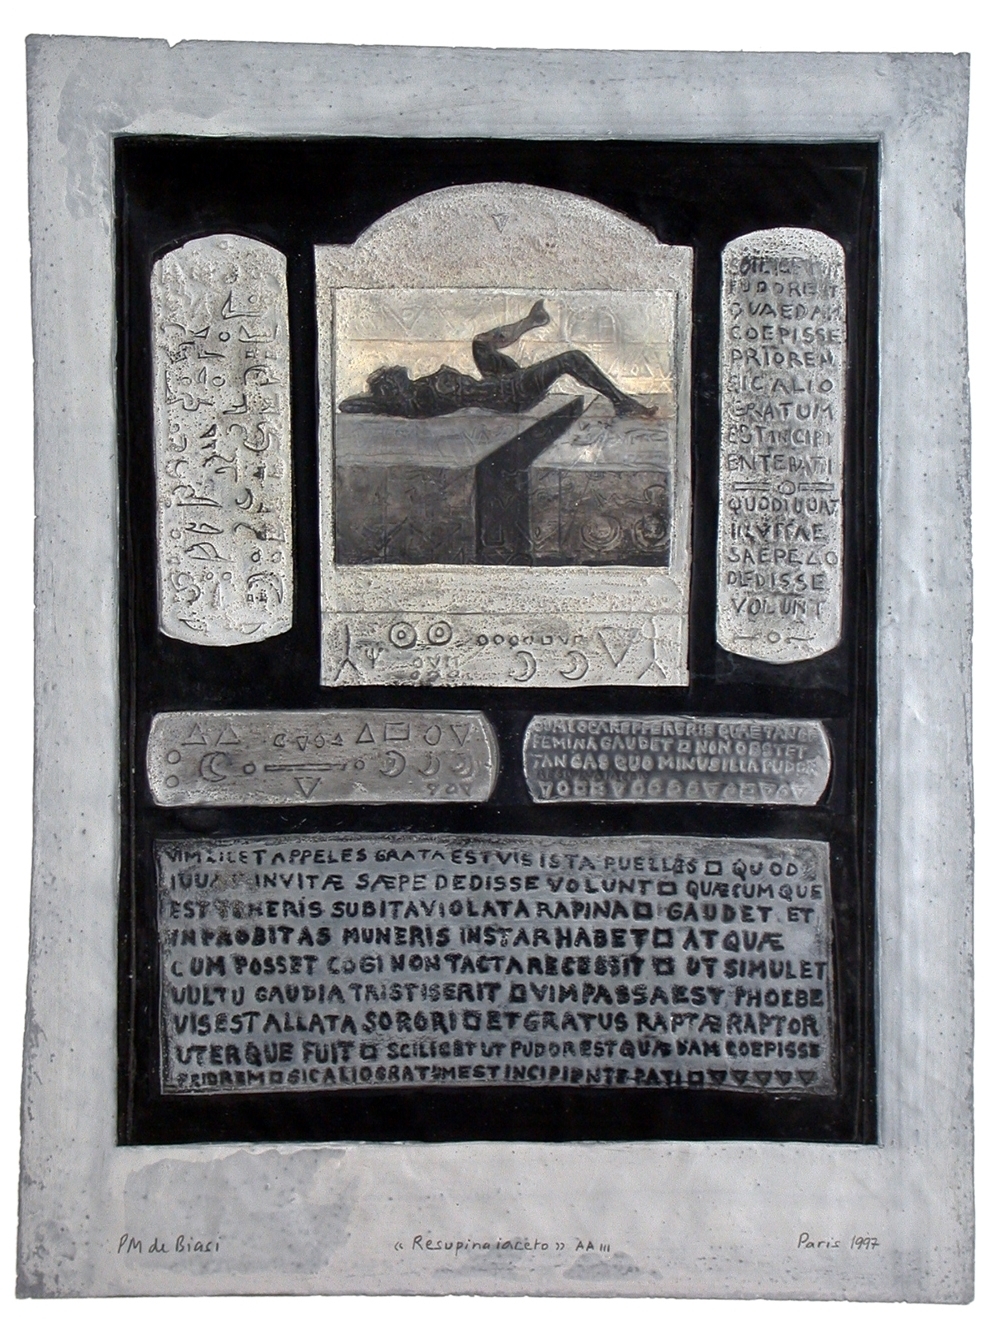 PUDORE ST
QUAEDAM
COEPISSE
PRIOREM
SIC ALIO
GRATUM
EST INCIPI
ENTE PATI
QUOD IUUAT
INVITAE
SAEPE
DEDISSE
VOLUNT
FEMINA GAUDET □ NON OBSTET
TANGAS QUO MINUS ILLA PUDOR
VIM LICET APPELES GRATA EST VIS ISTA PUELLES □ QUOD
IUUAT INVITÆ SÆPE DEDISSE VOLUNT □ QUÆCUMQUE
EST VENERIS SUBITA VIOLATA RAPINA □ GAUDET ET
INPROBITAS MUNERIS INSTAR HABET □ AT QUÆ
CUM POSSET COGI NON TACTA RECESSIT □ UT SIMULET
UULTU GAUDIA TRISTIS ERIT □ VIM PASSA EST PHOEBE
VIS EST ALLATA SORORI □ ET GRATUS RAPTÆ RAPTOR
UTERQUE FUIT □ SCILICET UT PUDOR EST QUÆDAM COEPISSE
PRIOREM □ SIC ALIO GRATUM EST INCIPIENTE PATI □ ▽▽▽▽▽
PM de Biasi « Resupina iaceto » AA III Paris 1997